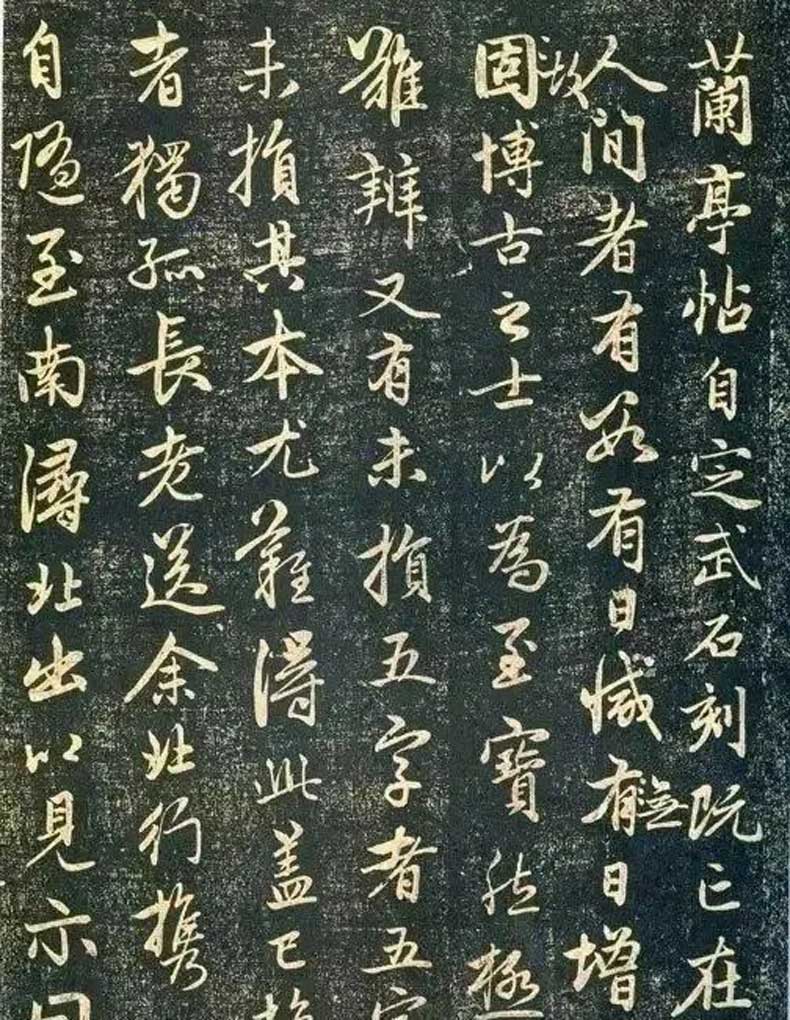 蘭亭帖自定武石刻既亡在
人間者有數有日減有無日增
固故博古之士以為至寶然極
難辨又有未損五字者五字
未損其本尤難得此蓋已損
者獨孤長老送余北行攜
自隨至南潯北出以見示因